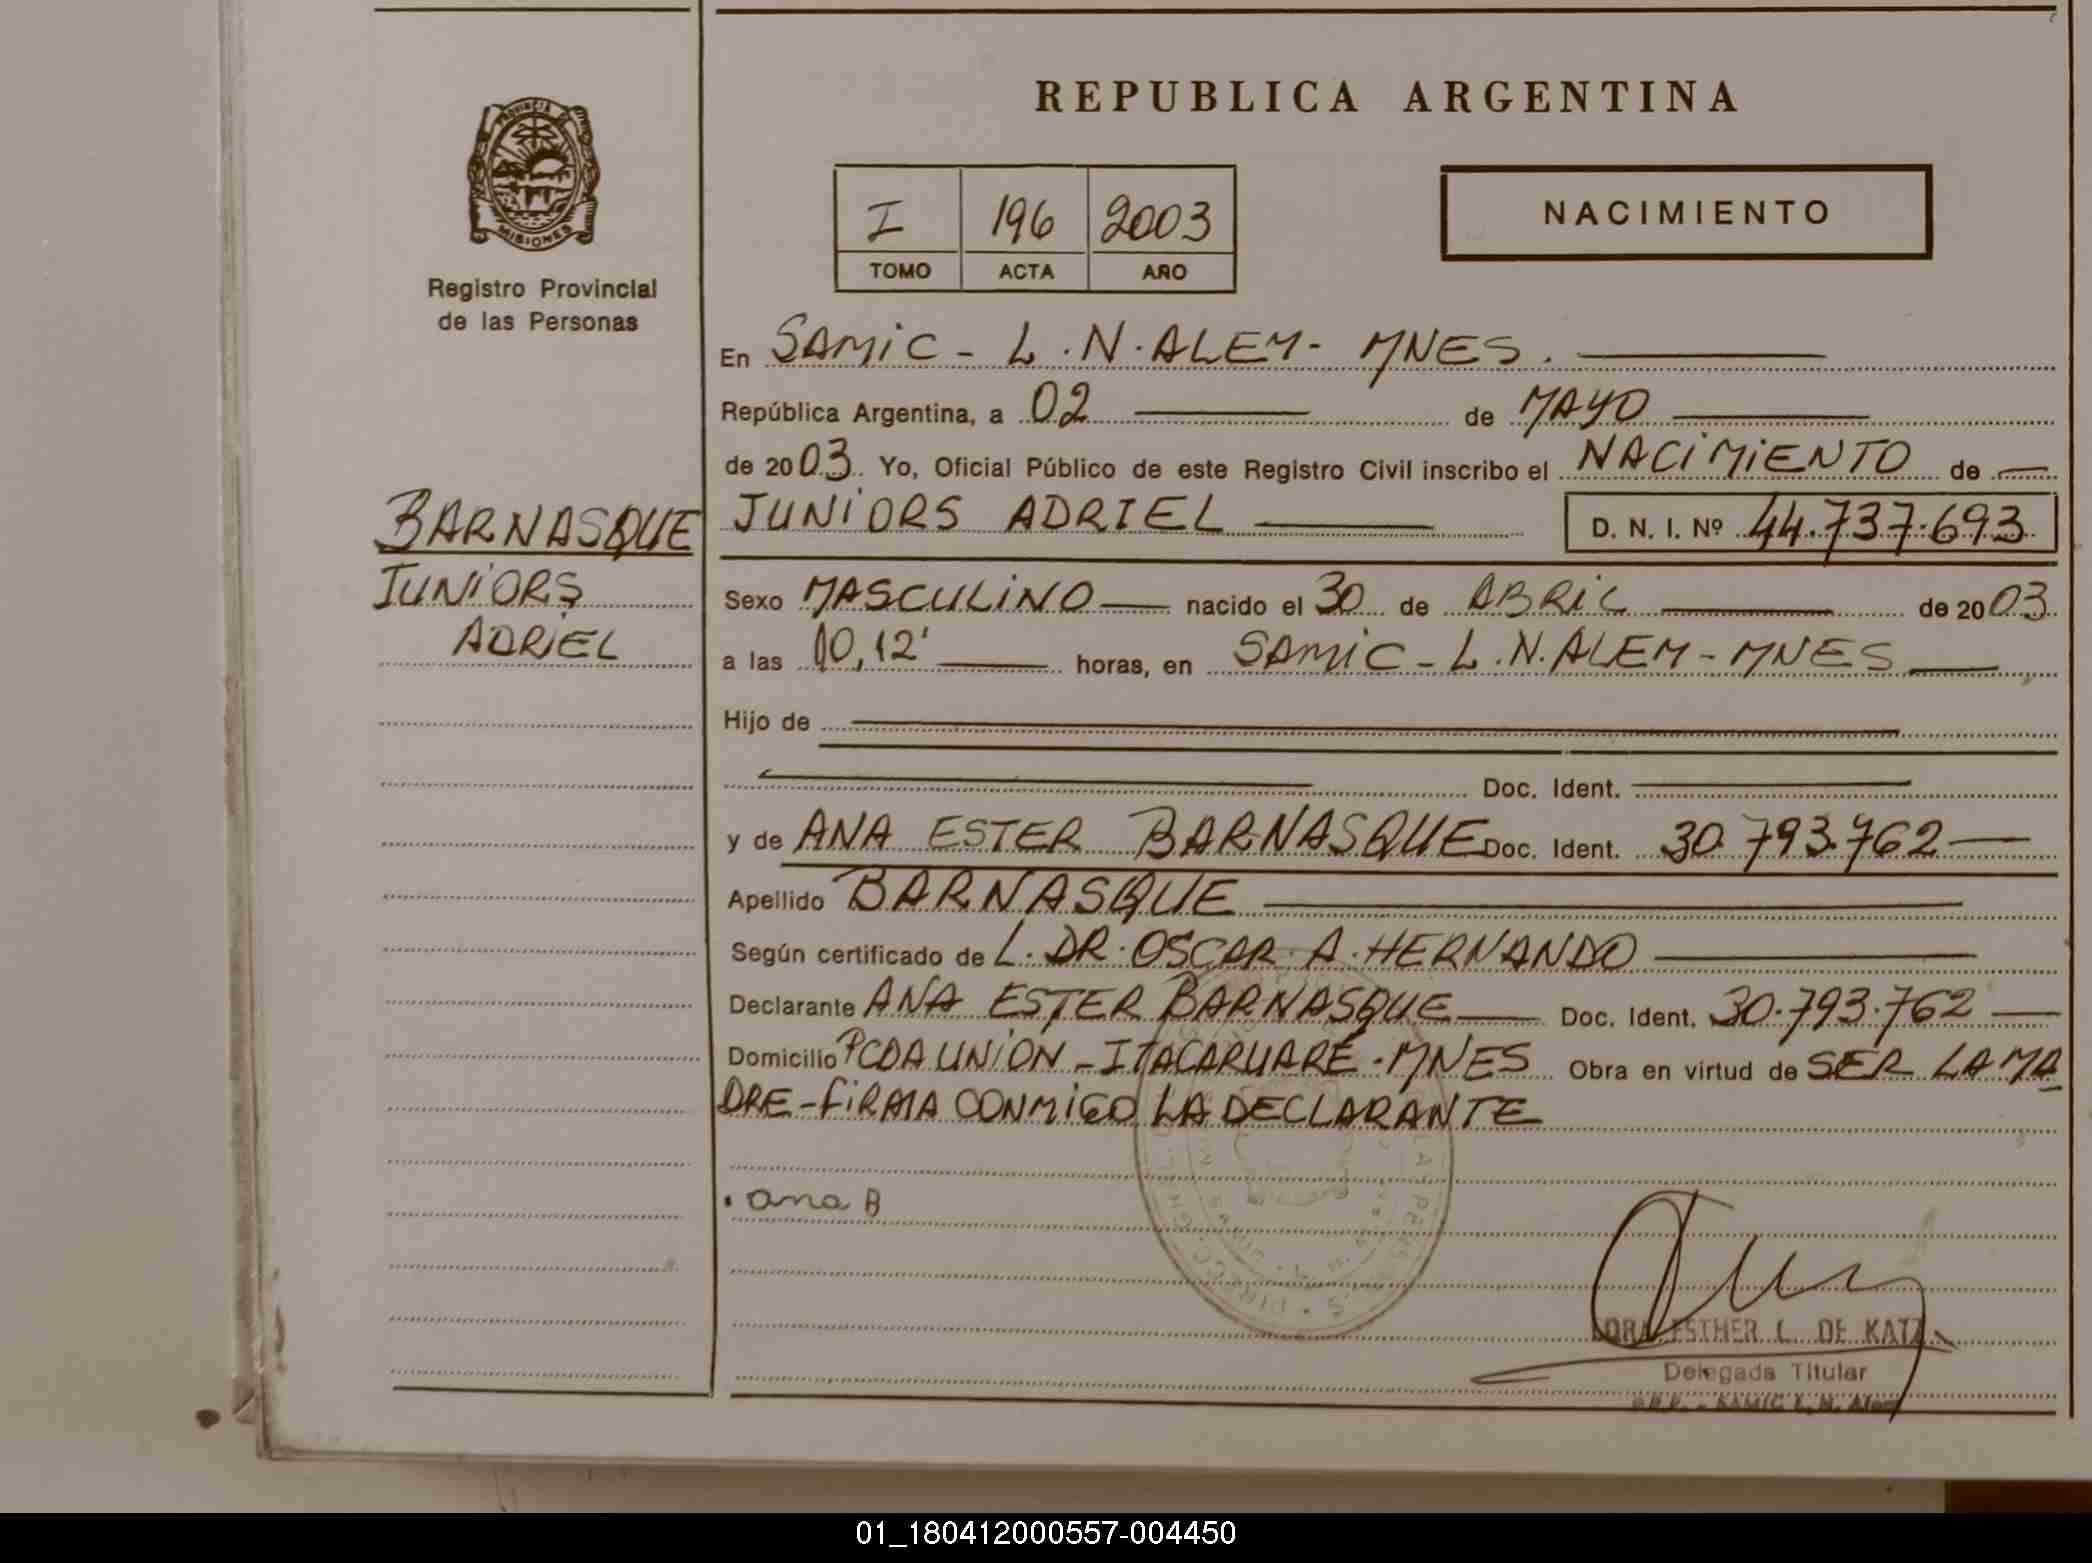 PROVINCIA DE
MISIONES
Registro Provincial
de las Personas
BARNASQUE
JUNIORS
ADRIEL
REPUBLICA ARGENTINA
I 196 2003
TOMO ACTA AÑO
NACIMIENTO
En SAMIC - L.N.ALEM - MNES.
República Argentina, a 02 de MAYO
de 2003. Yo, Oficial Público de este Registro Civil inscribo el NACIMIENTO de
JUNIORS ADRIEL D. N. I. Nº 44.737.693
Sexo MASCULINO nacido el 30 de ABRIL de 2003
a las 10,12' horas, en SAMIC - L.N.ALEM - MNES
Hijo de
Doc. Ident.
y de ANA ESTER BARNASQUE Doc. Ident. 30.793.762
Apellido BARNASQUE
Según certificado de L. DR. OSCAR A. HERNANDO
Declarante ANA ESTER BARNASQUE Doc. Ident. 30.793.762
Domicilio PCDA UNION - ITACARUARE - MNES Obra en virtud de SER LA MA
DRE - FIRMA CONMIGO LA DECLARANTE
ana B
DRA. ESTHER L. DE KATZ
Delegada Titular
SAMIC L. N. Alem
01_180412000557-004450